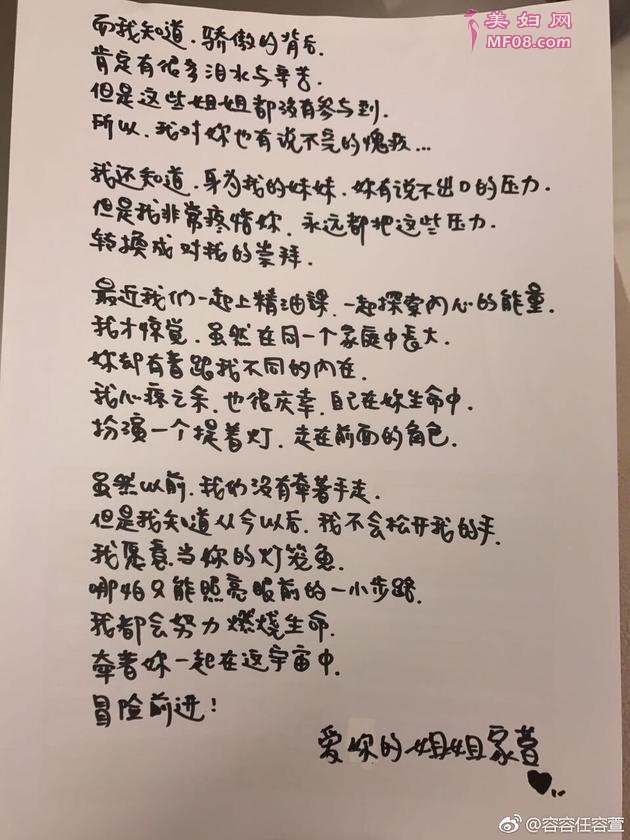 美妇网
MF08.com
而我知道,骄傲的背后,
肯定有很多泪水与辛苦.
但是这些姐姐都没有参与到.
所以,我对妳也有说不完的愧疚...
我还知道,身为我的妹妹,妳有说不出口的压力.
但是我非常疼惜妳,永远都把这些压力.
转换成对我的崇拜.
最近我们一起上精油课,一起探索内心的能量.
我才惊觉,虽然在同一个家庭中长大.
妳却有着跟我不同的内在.
我心疼之余,也很庆幸,自己在妳生命中.
扮演一个提着灯,走在前面的角色.
虽然以前,我们没有牵着手走.
但是我知道从今以后,我不会松开我的手.
我愿意当你的灯笼鱼.
哪怕只能照亮眼前的一小步路.
我都会努力燃烧生命.
牵着妳一起在这宇宙中.
冒险前进!
爱妳的姐姐家萱
@容容任容萱